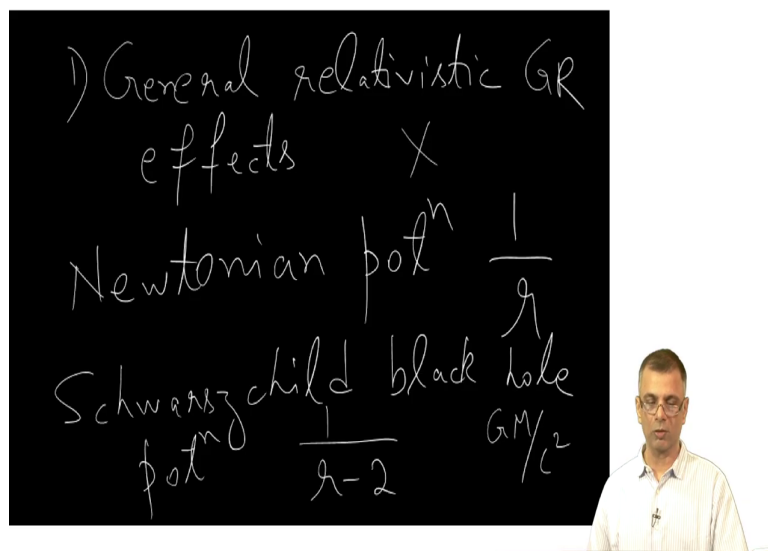 1) General relativistic GR
effects X
Newtonian potⁿ 1/r
Schwarszchild black hole
potⁿ 1/r-2 GM/c²